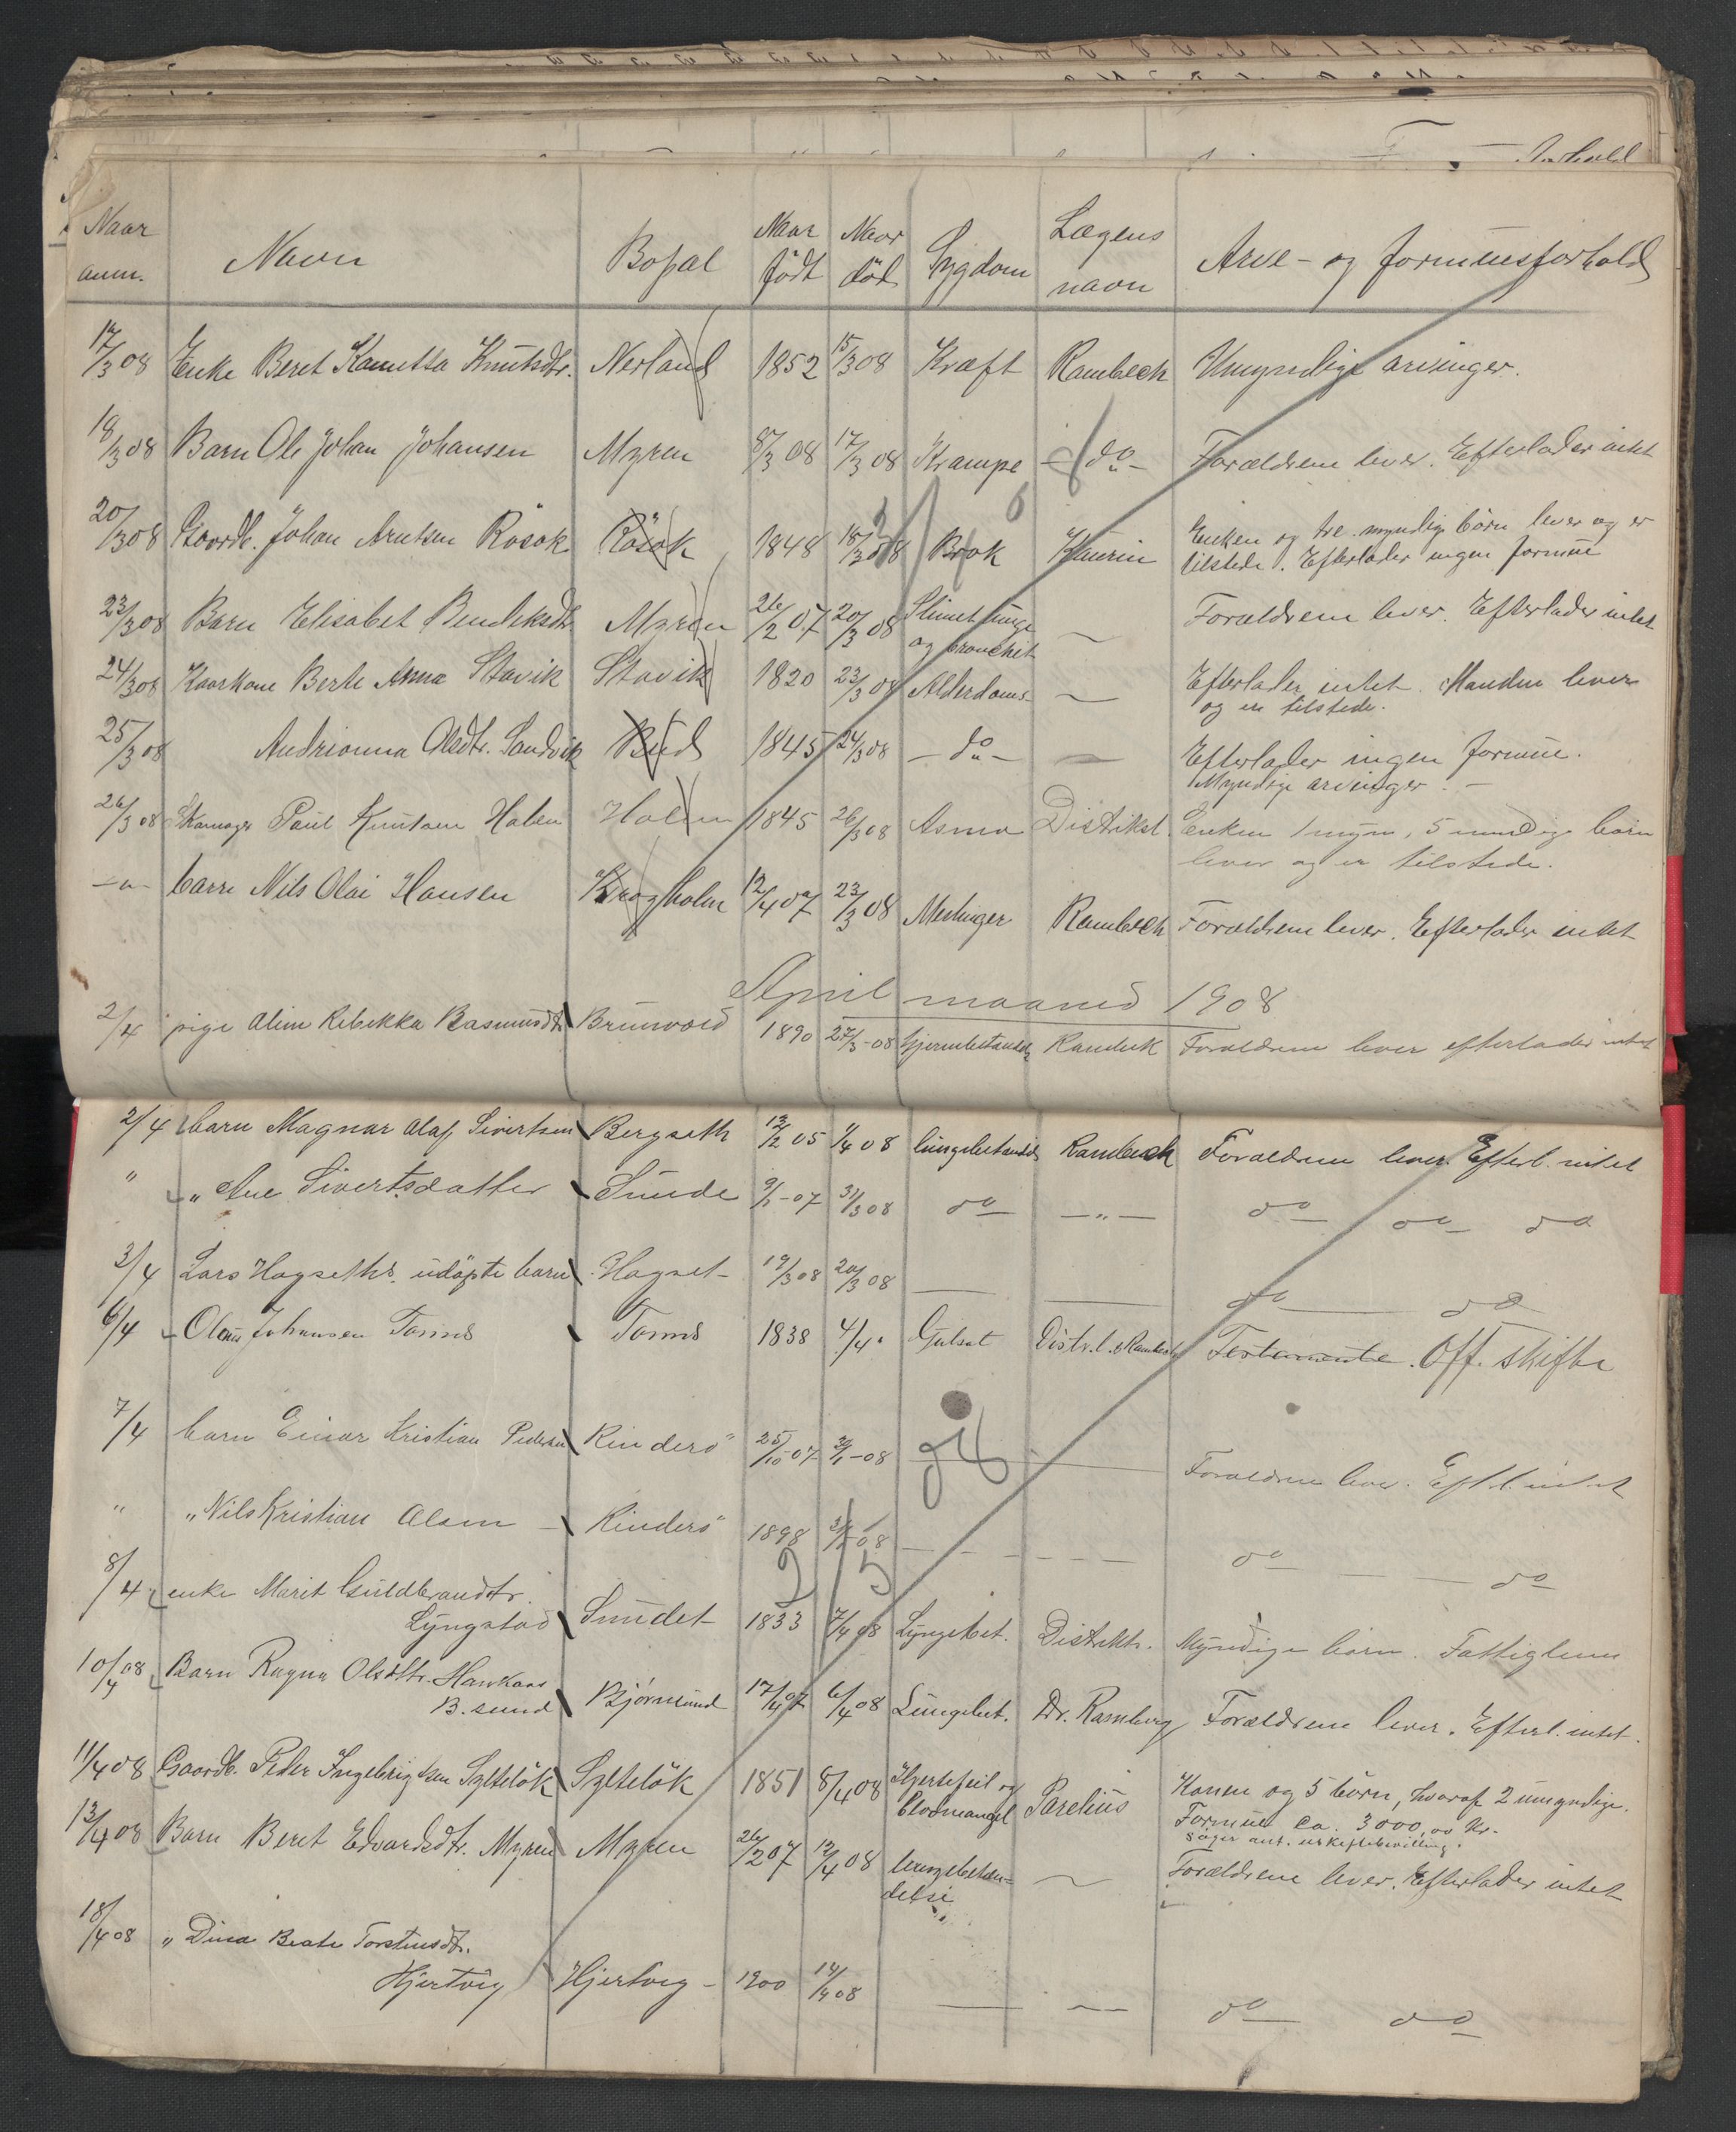 Naar anm. Navn Bopæl Naar født Naar død Sygdom Lægens navn Arve- og formuesforhold
17/3 08 Enke Beret Knutsdtr. Nerland 1852 15/3 08 Kræft Rambech Umyndige arvinger.
18/3 08 Barn Ole Johan Johansen Myren 8/3 08 17/3 08 Krampe - do - Forældrene lever. Efterlader intet
20/3 08 Gaardb. Johan Arntsen Rösok Rösok 1848 18/3 08 Brok Kaurin Enken og tre myndige börn lever og er
tilstede. Efterlader ingen formue
23/3 08 Barn Elisabet Bendiksdtr. Myren 26/2 07 20/3 08 Slimet lunge
og bronchit Forældrene lever. Efterlader intet
24/3 08 Kaarkone Berte Anna Stavik Stavik 1820 23/3 08 Alderdoms- Efterlader intet. Manden lever
og er tilstede.
25/3 08 Andrianna Olsdtr. Sandvik Bud 1845 24/3 08 - do - Efterlader ingen formue.
Myndige arvinger. -
26/3 08 Skomager Paul Knutsen Holen Holen 1845 26/3 08 Asma Distrikst. Enken 1 umyn, 5 myndige börn
lever og er tilstede.
-"- barn Nils Olai Hansen Krogholm 12/4 07 23/3 08 Rambech Forældrene lever. Efterlader intet
April maaned 1908
2/4 pige Rebekka Rasmusdtr 1890 27/3-08 Rambek Forældrene lever efterlader intet
2/4 barn Magnar Olaf Sivertsen Bergseth 12/2 05 1/4 08 lungebetændels Rambech Forældrene lever. Efterl. intet
" " Ane Sivertsdatter Sunde 9/1-07 31/3 08 do -"- do do do
3/4 Lars Hagseths udöpte barn Hagset 19/3 08 20/3 08 do do
6/4 Olaus Johansen Tornes Tornes 1838 4/4 " Gulsot Distr.l. & Rambech Testamente. Off. skifte
7/4 barn Einar Kristian Pedersen Rinderö 25/10-07 -08 Forældrene lever. Eftl. intet
" " Nils Kristian Olsen Rinderö 1898 -08 do do
8/4 enke Marit Guldbrandtr.
Lyngstad Smudet 1833 7/4 08 Lungebet. Distrikts. Myndige börn. Fattiglem
10/4 08 Barn Ragna Olsdtr. Haukaas
B.sund Bjørnsund 17/4 07 6/4 08 Lungebet. Dr. Ramberg Forældrene lever. Efterl. intet.
11/4 08 Gaardb. Peder Ingebrigtsen Sylteløk Sylteløk 1851 8/4 08 Hjertefeil og
blodmangel Parelius Konen og 5 börn, hvoraf 2 umyndige.
Formue Ca. 3000,00 Kr.
søger ant. uskiftebevilling.
13/4 08 Barn Beret Edvardsdtr. Myren Myren 26/2 07 12/4 08 lungebetæn-
delse Forældrene lever. Efterlader intet
18/4 08 " Dina Beate Torstensdtr.
Hjertvig Hjertvig - 1900 14/4 08 do do